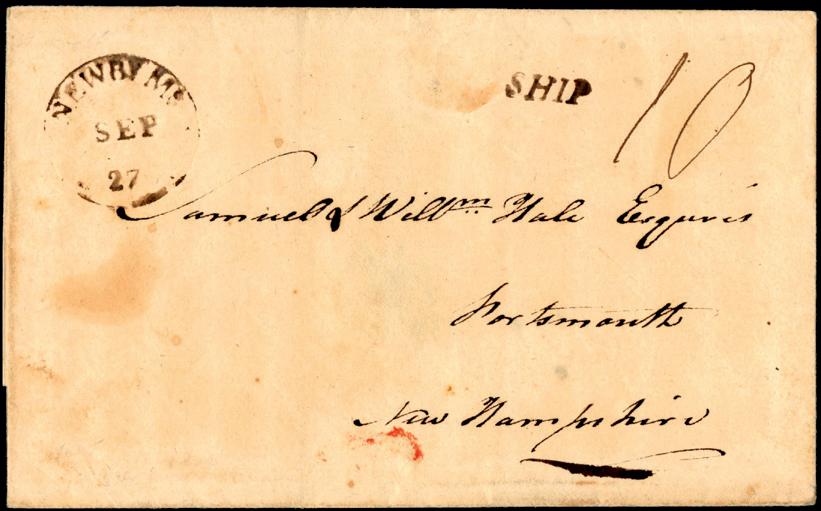 NEWBY MS
SEP
27
SHIP
10
Samuel & Willm Hale Esquires
Portsmouth
New Hampshire